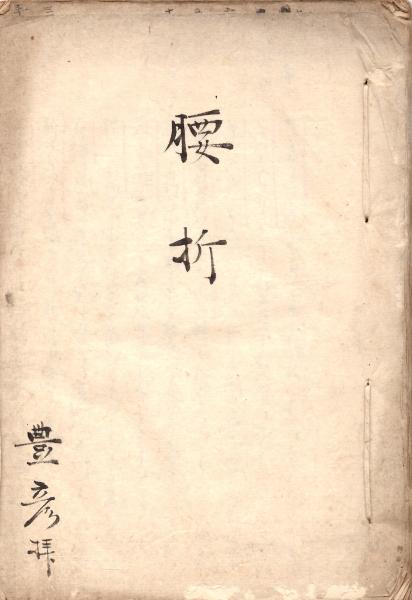 腰折
豊彦拝